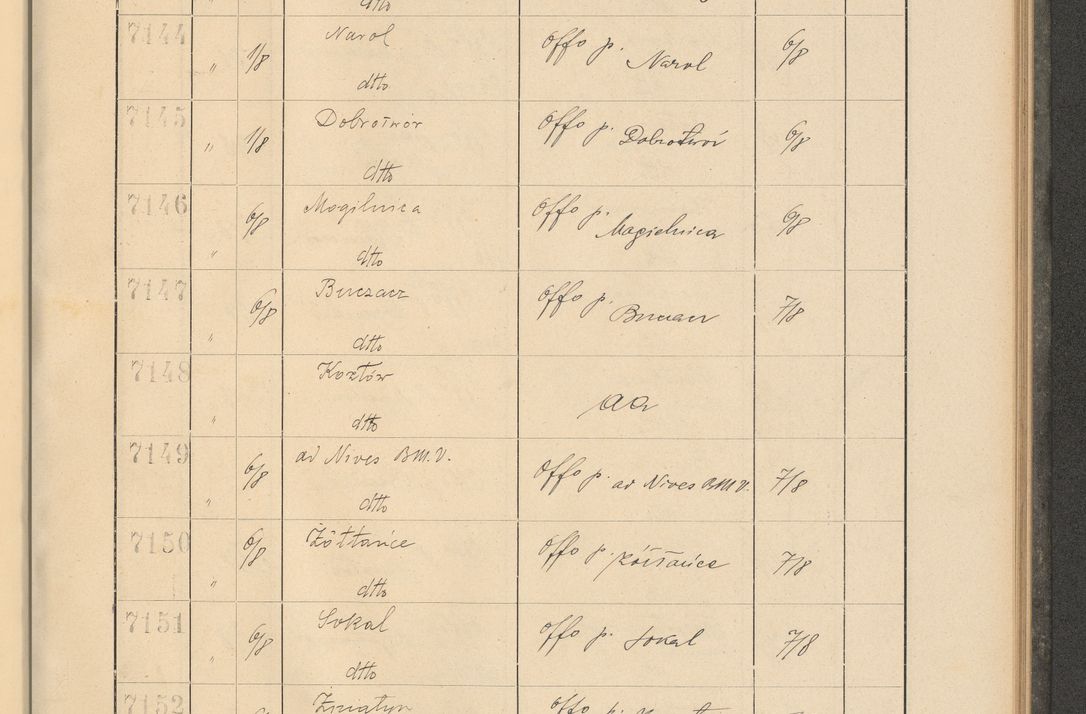 " dtto
7144 " 1/8 Narol Offo p. Narol 6/8
dtto
7145 " 1/8 Dobrotwór Offo p. Dobrotwór 6/8
dtto
7146 " 6/8 Mogilnica Offo p. Magielnica 6/8
dtto
7147 " 6/8 Buczacz Offo p. Buczacz 7/8
dtto
7148 " Kozłów aa
dtto
7149 " 6/8 ad Nives B.M.V. Offo p. ad Nives BMV. 7/8
dtto
7150 " 6/8 Żółtańce Offo p. Żółtańce 7/8
dtto
7151 " 6/8 Sokal Offo p. Sokal 7/8
dtto
7152